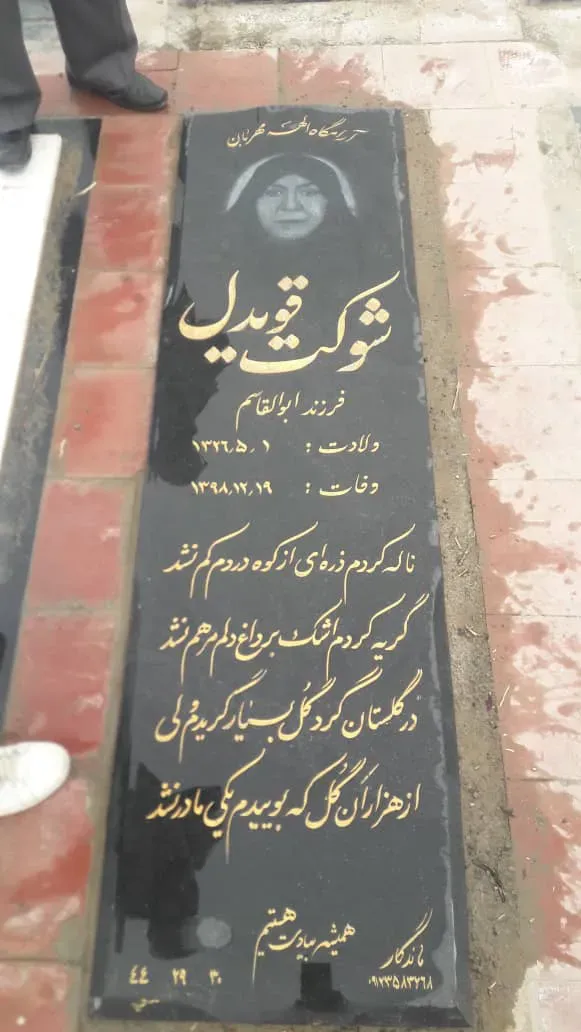 آرامگاه الهه مهربان
شوکت قویدل
فرزند ابوالقاسم
ولادت : ۱۳۲۶,۵,۱
وفات : ۱۳۹۸,۱۲,۱۹
ناله کردم ذره‌ای از کوه دردم کم نشد
گریه کردم اشک بر داغ دلم مرهم نشد
در گلستان گرد گل بسیار گردیدم ولی
از هزاران گل که بوییدم یکی مادر نشد
همیشه بیادت هستیم
ماندگار
۳۰ ۲۹ ۴۴